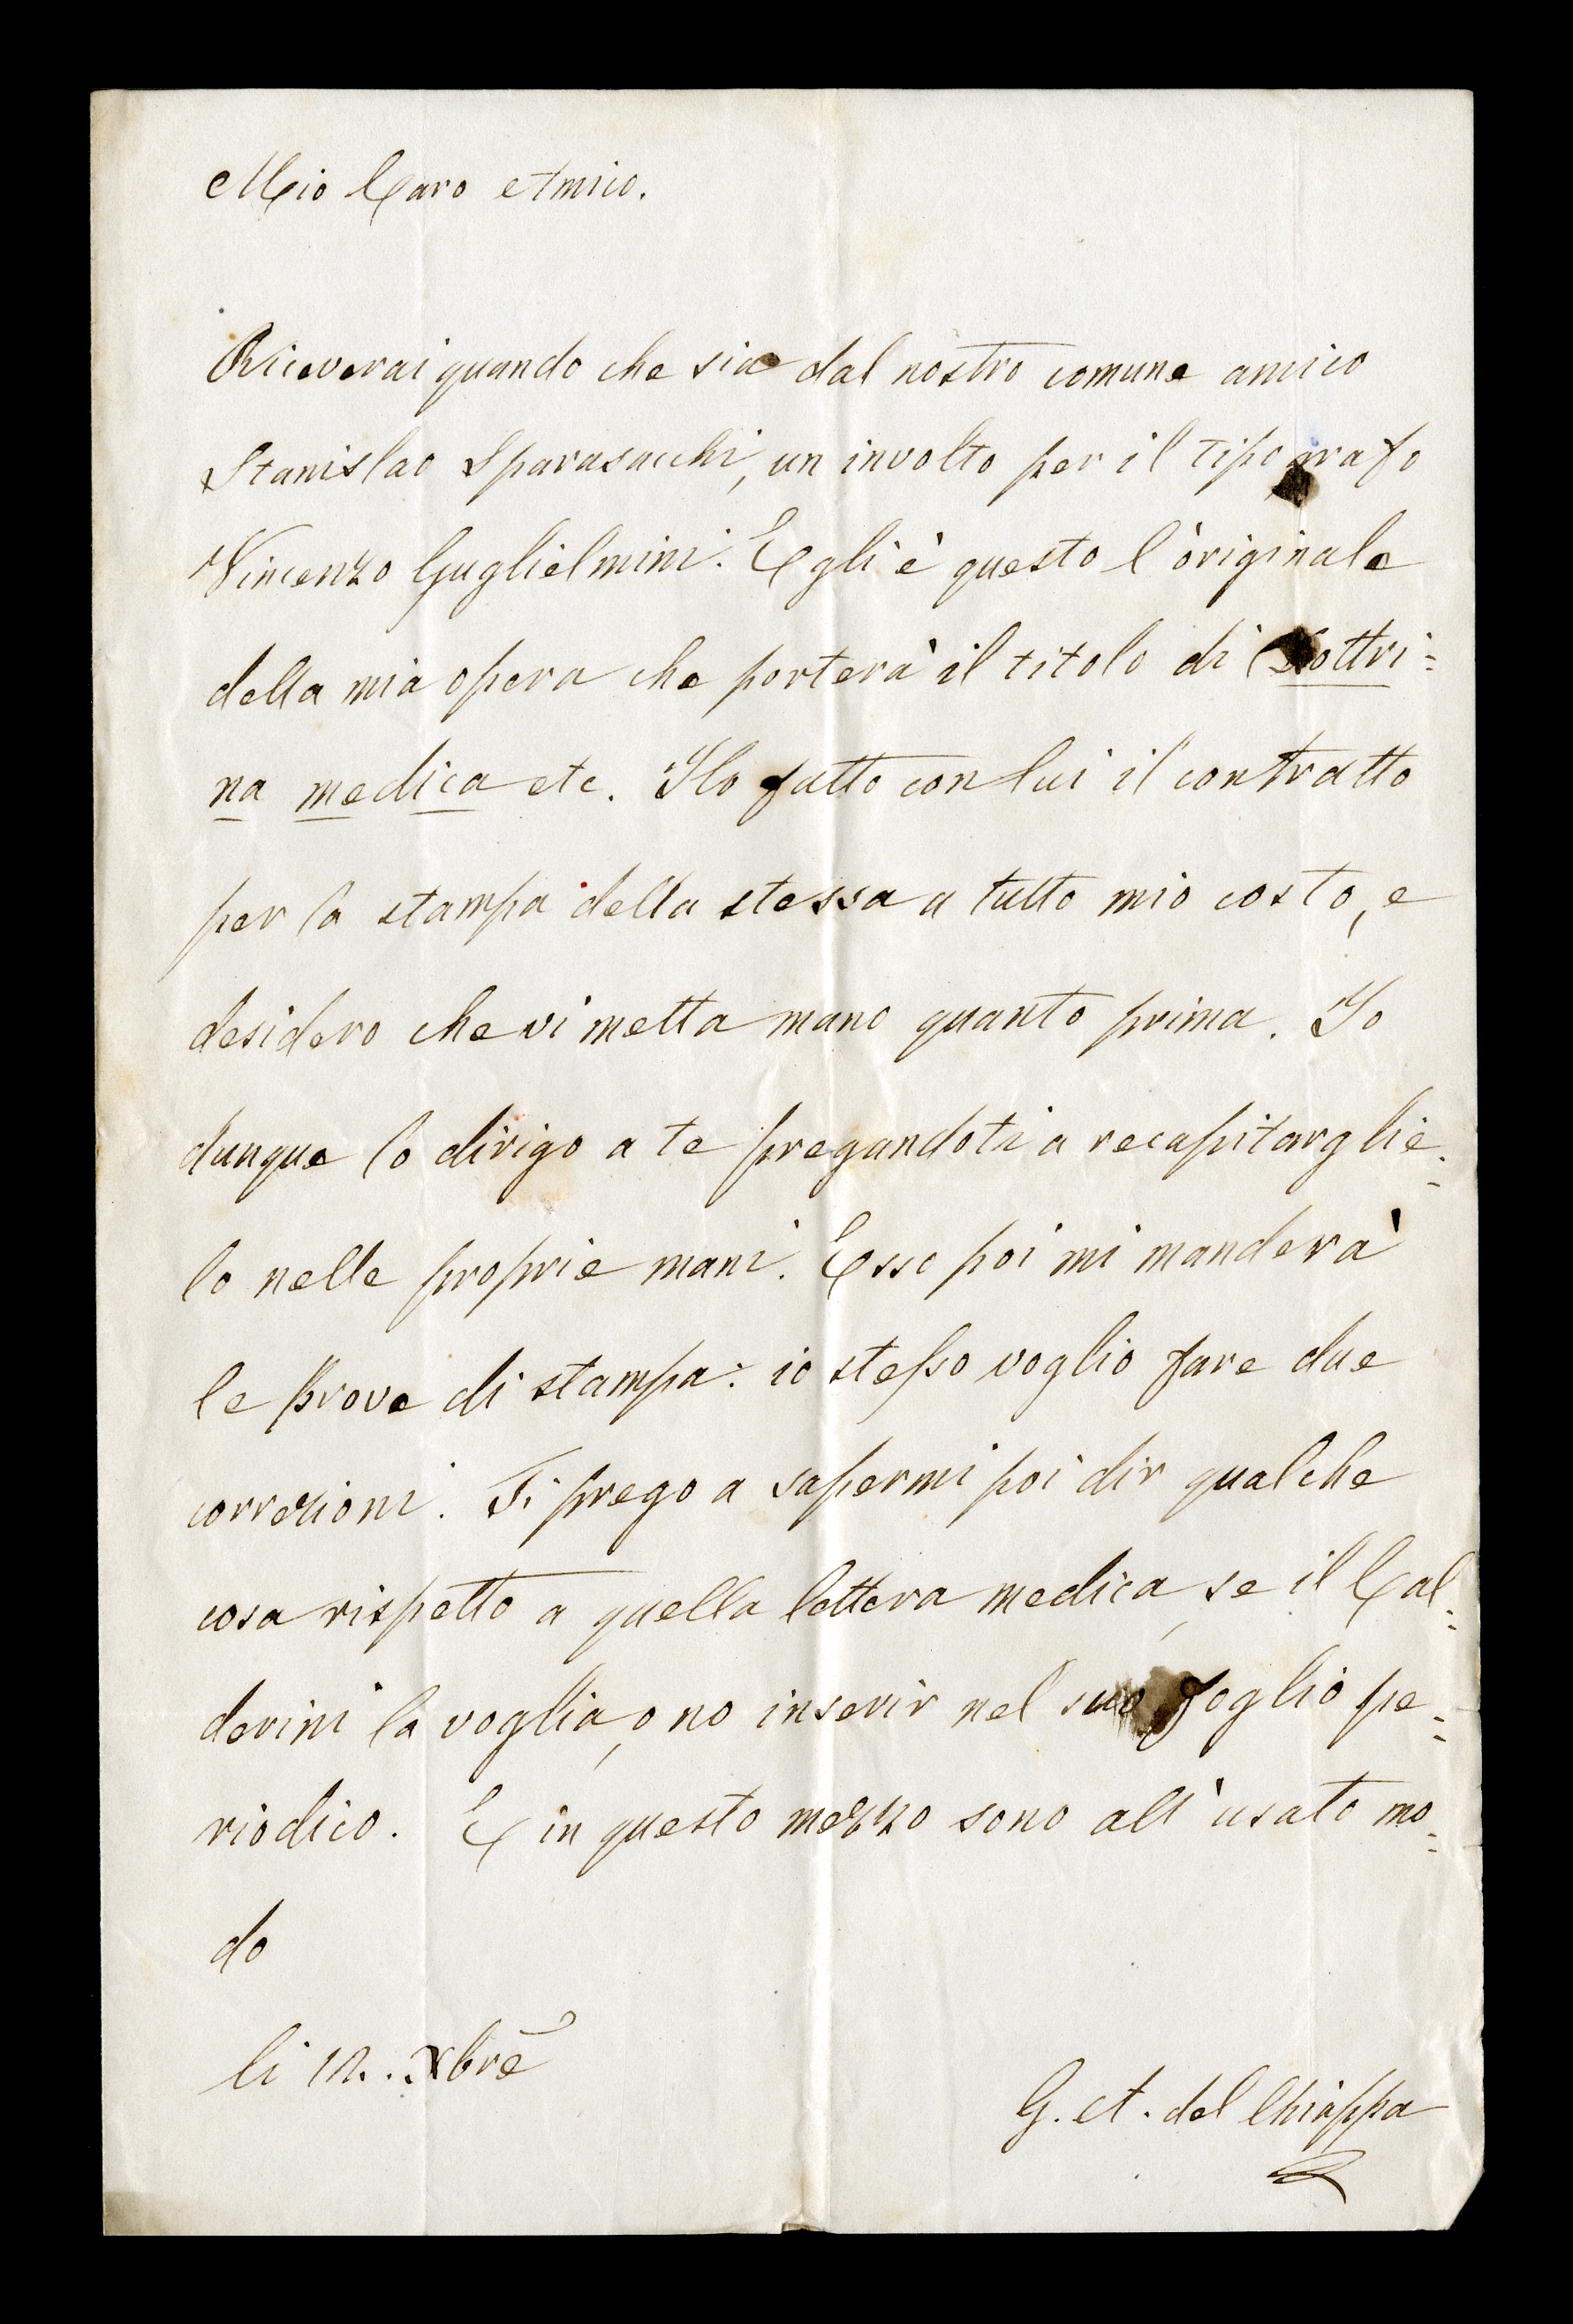 Mio Caro Amico.
Riceverai quando che sia dal nostro comune amico
Stanislao Sparasacchi, un involto per il tipografo
Vincenzo Guglielmini. Egli è questo l'originale
della mia opera che porterà il titolo di Dottri=
na medica etc. Ho fatto con lui il contratto
per la stampa della stessa a tutto mio costo, e
desidero che vi metta mano quanto prima. Io
dunque lo dirigo a te pregandoti a recapitarglie=
lo nelle proprie mani. Esso poi mi manderà
le prove di stampa: io stesso voglio fare due
correzioni. Ti prego a sapermi poi dir qualche
cosa rispetto a quella lettera medica, se il Cal=
derini la voglia, o no inserir nel suo foglio pe=
riodico. E in questo mezzo sono all'usato mo=
do
li 12. Xbre
G. A. del Chiappa